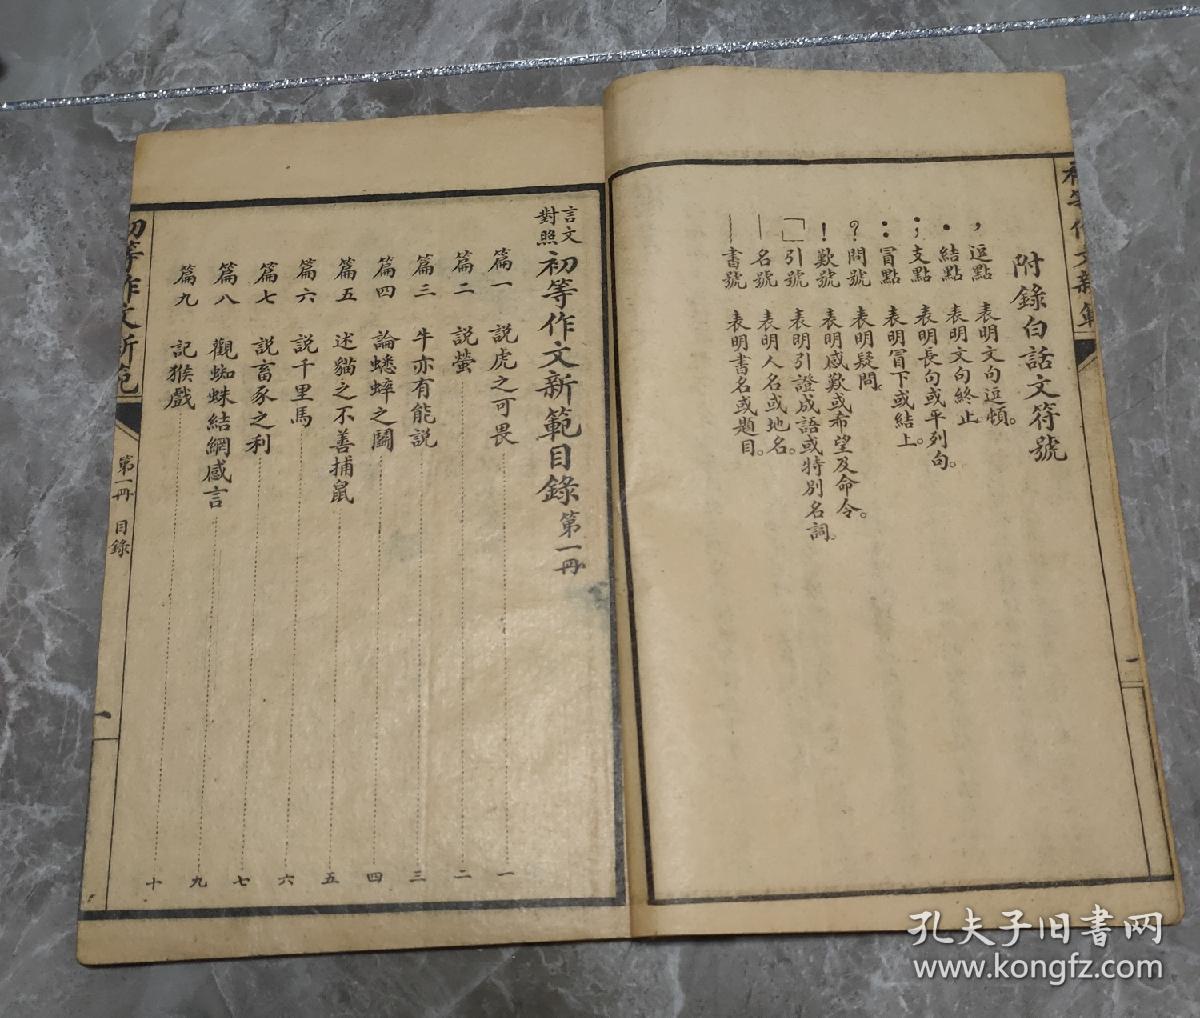 初等作文新範
附錄白話文符號
，逗點 表明文句逗頓。
．結點 表明文句終止
；支點 表明長句或平列句。
：冒點 表明冒下或結上。
？問號 表明疑問
！歎號 表明感歎或希望及命令。
﹁﹂引號 表明引證成語或特別名詞
｜名號 表明人名或地名。
︴書號 表明書名或題目。
一
言文對照 初等作文新範目錄 第一冊
篇一 說虎之可畏 一
篇二 說螢 二
篇三 牛亦有能說 三
篇四 論蟋蟀之鬬 四
篇五 述貓之不善捕鼠 五
篇六 說千里馬 六
篇七 說畜豕之利 七
篇八 觀蜘蛛結網感言 九
篇九 記猴戲 十
初等作文新範 第一冊 目錄 一
孔夫子旧书网
www.kongfz.com